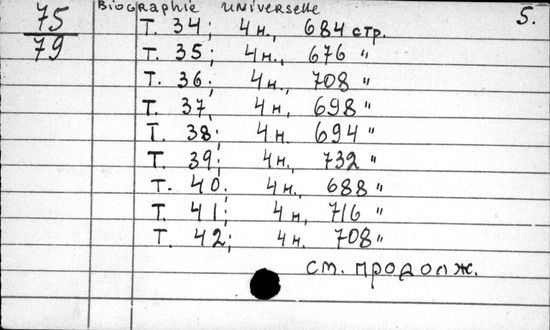 75
79
Biographie universelle 5.
Т. 34; 4 н., 684 стр.
Т. 35; 4 н., 676 "
Т. 36; 4 н., 708 "
Т. 37; 4 н, 698 "
Т. 38; 4 н. 694 "
Т. 39; 4 н., 732 "
Т. 40. 4 н., 688 "
Т. 41; 4 н, 716 "
Т. 42; 4 н. 708 "
см. продолж.